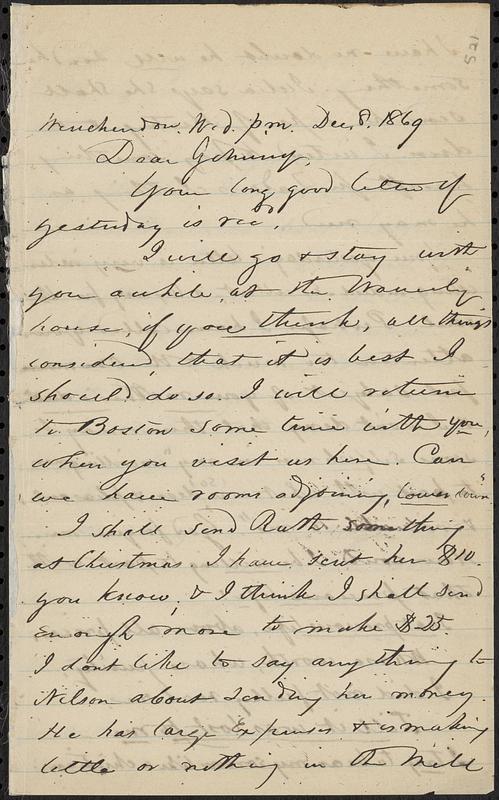 521
Winchendon. Wed. pm. Dec. 8. 1869
Dear Johnny,
Your long, good letter of
yesterday is rec'd.
I will go & stay with
you awhile, at the Waverly
house, if you think, all things
considered, that it is best I
should do so. I will return
to Boston some time with you,
when you visit us here. Can
we have rooms adjoining, lower down"
I shall send Ruth something
at Christmas. I have sent her $10.
you know, & I think I shall send
enough more to make $25.
I dont like to say anything to
Nelson about sending her money.
He has large Expenses & is making
little or nothing in the Mill